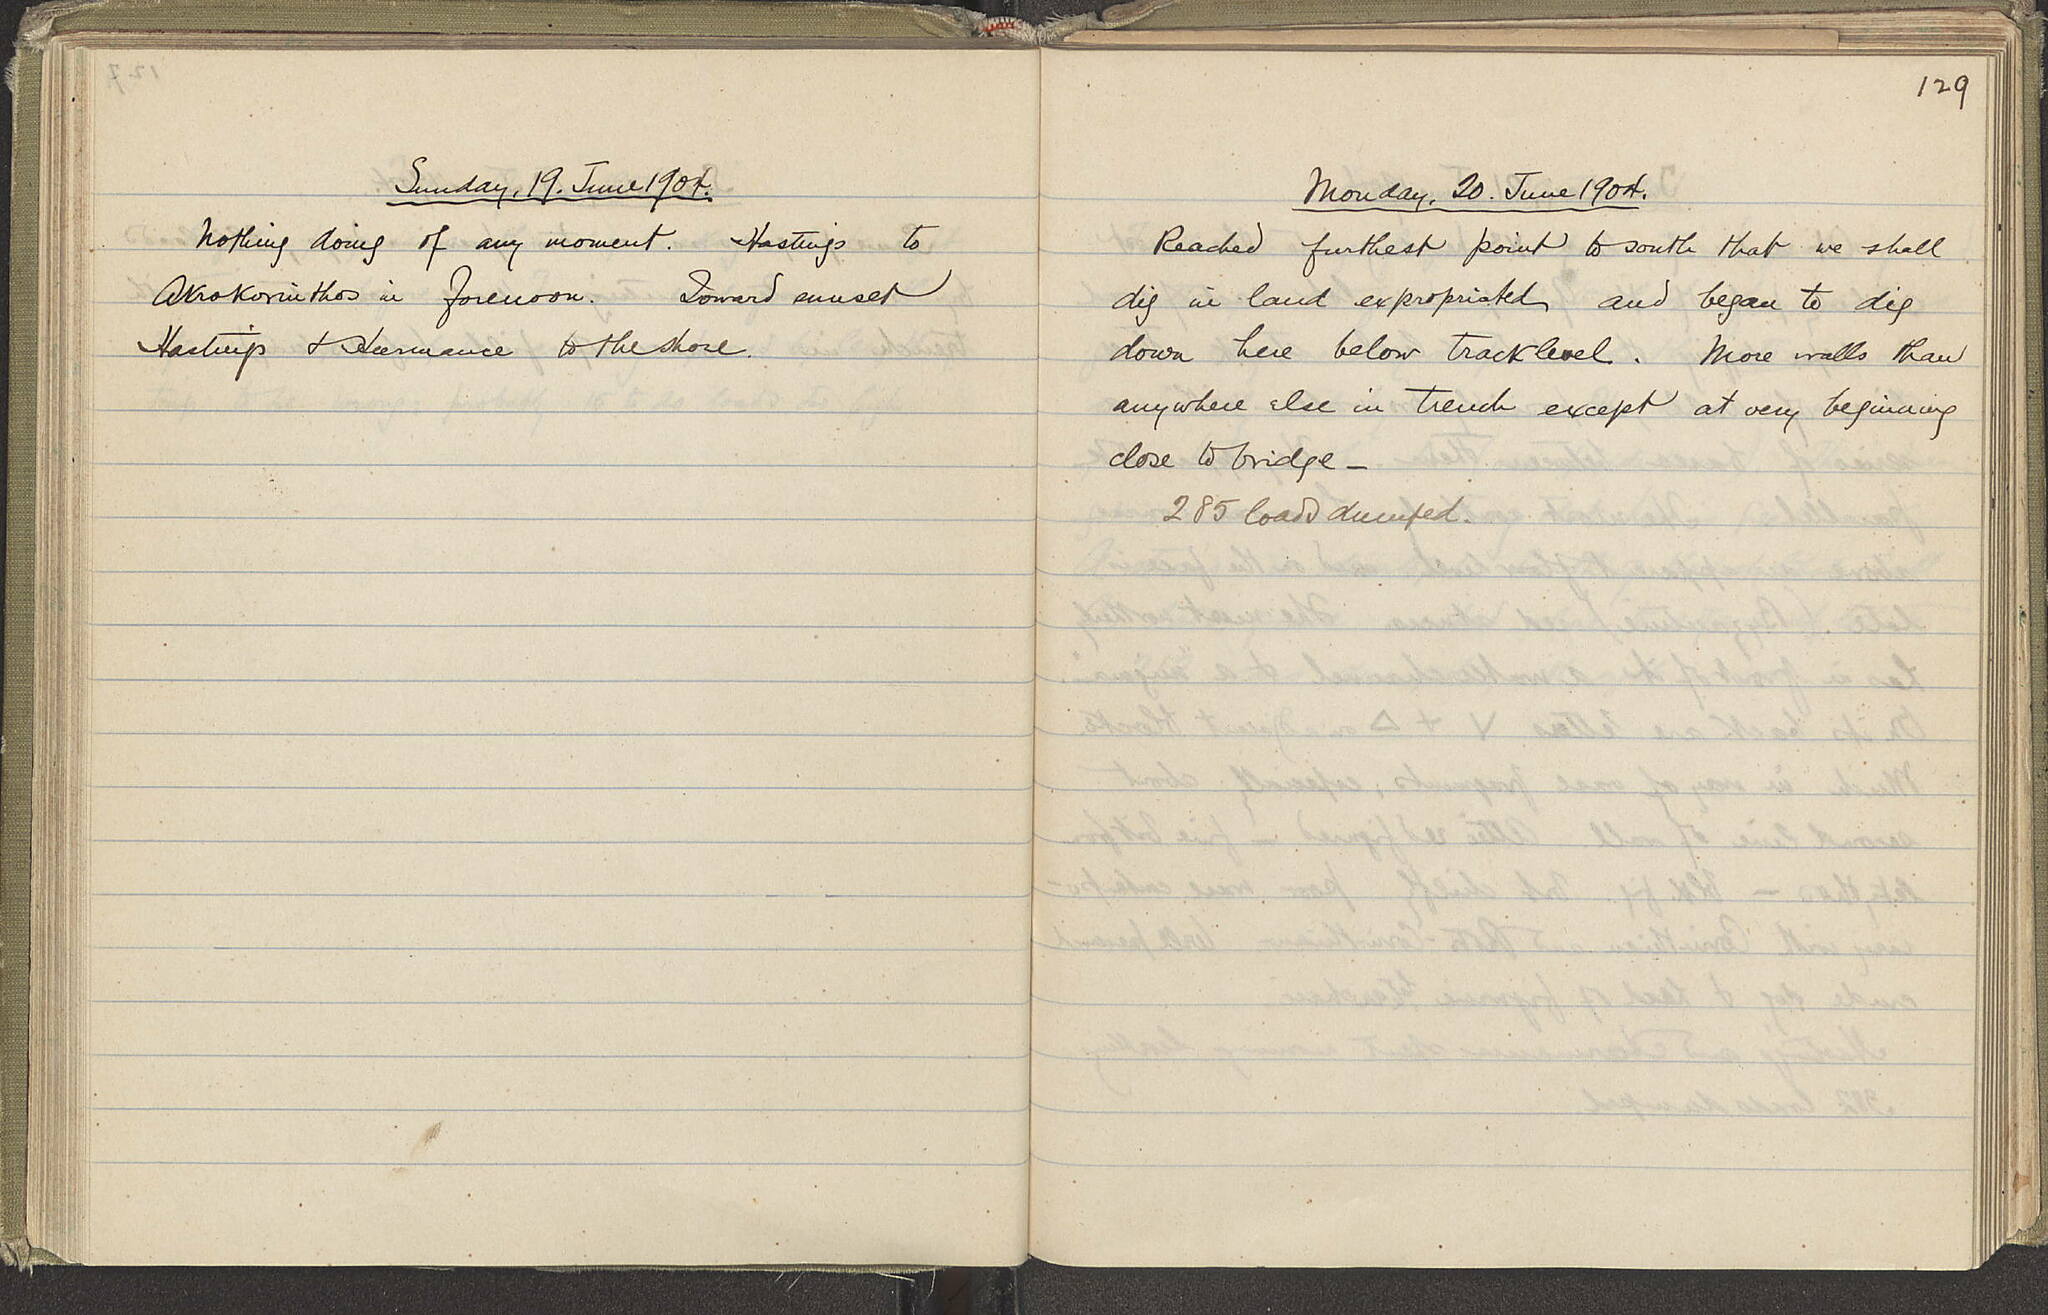 Sunday, 19. June 1904.
Nothing doing of any moment. Hastings to
Akrokorinthos in forenoon. Toward sunset
Hastings & Heermance to the shore.
129
Monday, 20. June 1904.
Reached furthest point to south that we shall
dig in land expropriated and began to dig
down here below track level. More walls than
anywhere else in trench except at very beginning
close to bridge —
285 loads dumped.